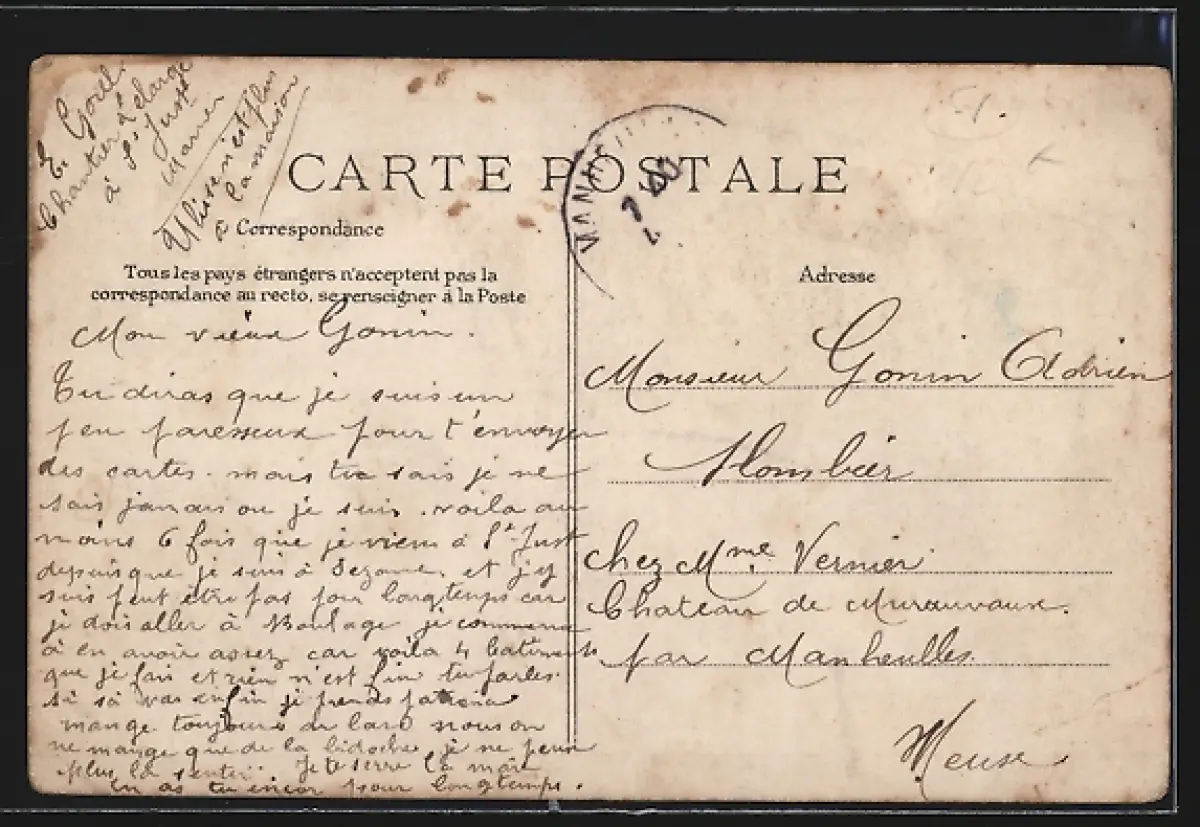 E. Goël
Chantier Delarge
à St Just
Marne
Ulisse n'est plus
à la maison
CARTE POSTALE
MANHE
Correspondance
Tous les pays étrangers n'acceptent pas la
correspondance au recto, se renseigner à la Poste
Adresse
Mon vieux Gonin.
Tu diras que je suis un
peu paresseux pour t'envoyer
des cartes. mais tu sais je ne
sais jamais ou je suis. voila au
moins 6 fois que je viens à St Just
depuis que je suis à Sezanne. et j'y
suis peut être pas pour longtemps car
je dois aller à Boulage je commence
à en avoir assez car voila 4 batiments
que je fais et rien n'est fini tu parles
si sà vas enfin je prends patience
mange toujours du lard nous on
ne mange que de la bidoche je ne peux
plus la sentir. Je te serre la main
en as tu encor pour longtemps.
Monsieur Gonin Adrien
Plombier
chez Mme Vernier
Chateau de Murauvaux.
par Manheulles
Meuse